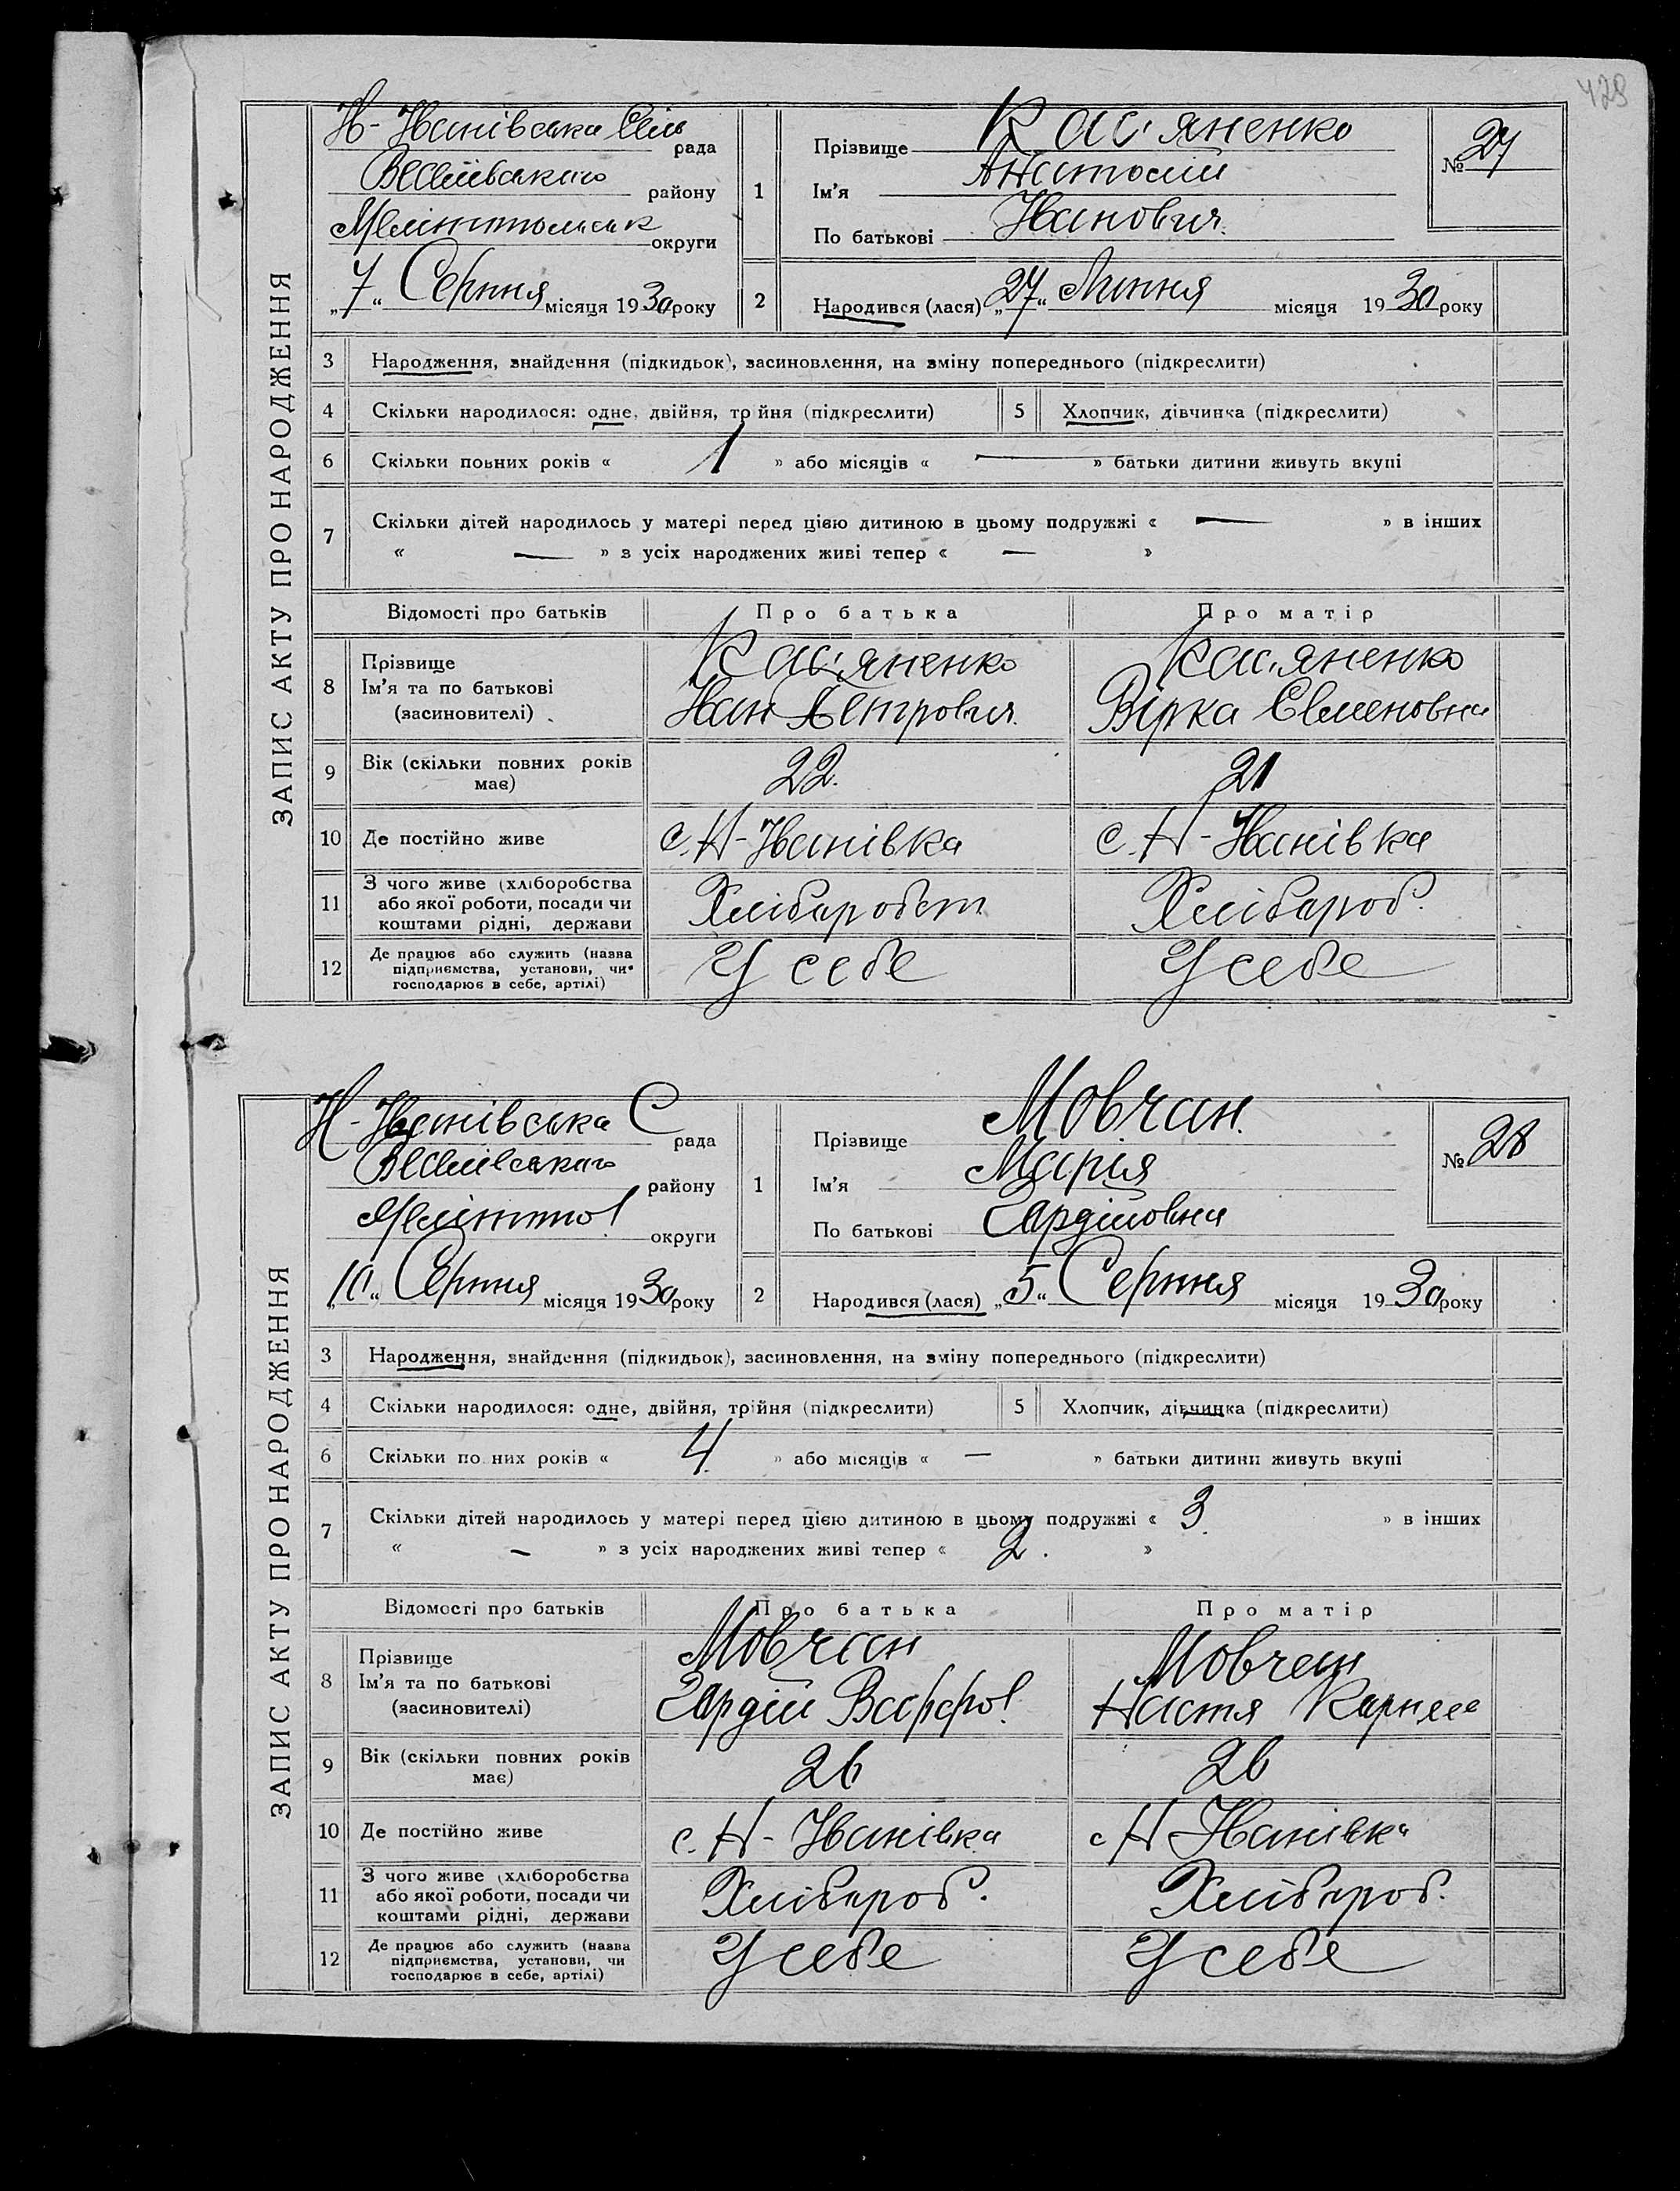 428
ЗАПИС АКТУ ПРО НАРОДЖЕННЯ
Н-Іванівська Сіль рада
Веселівського району
Мелітопольськ округи
„7“ Серпня місяця 1930 року
1
Прізвище Кас'яненко
Ім'я Анатолій
По батькові Іванович
№ 27
2
Народився (лася) „27“ Липня місяця 1930 року
3 Народження, знайдення (підкидьок), засиновлення, на зміну попереднього (підкреслити)
4 Скільки народилося: одне, двійня, трійня (підкреслити) 5 Хлопчик, дівчинка (підкреслити)
6 Скільки повних років « 1 » або місяців « — » батьки дитини живуть вкупі
7 Скільки дітей народилось у матері перед цією дитиною в цьому подружжі « — » в інших
« — » з усіх народжених живі тепер « — »
Відомості про батьків Про батька Про матір
8 Прізвище Ім'я та по батькові (засиновителі)
Кас'яненко Іван Петрович
Кас'яненко Вірка Євменовна
9 Вік (скільки повних років має) 22. 21
10 Де постійно живе с. Н-Іванівка с. Н-Іванівка
11 З чого живе (хліборобства або якої роботи, посади чи коштами рідні, держави Хлібаробст Хлібароб.
12 Де працює або служить (назва підприємства, установи, чи господарює в себе, артілі) У себе У себе
ЗАПИС АКТУ ПРО НАРОДЖЕННЯ
Н-Іванівська С рада
Веселівського району
Мелітопол округи
„10“ Серпня місяця 1930 року
1
Прізвище Мовчан
Ім'я Марія
По батькові Гардійовна
№ 28
2
Народився (лася) „5“ Серпня місяця 1930 року
3 Народження, знайдення (підкидьок), засиновлення, на зміну попереднього (підкреслити)
4 Скільки народилося: одне, двійня, трійня (підкреслити) 5 Хлопчик, дівчинка (підкреслити)
6 Скільки по них років « 4 » або місяців « — » батьки дитини живуть вкупі
7 Скільки дітей народилось у матері перед цією дитиною в цьому подружжі « 3 » в інших
« — » з усіх народжених живі тепер « 2 . »
Відомості про батьків Про батька Про матір
8 Прізвище Ім'я та по батькові (засиновителі)
Мовчан Гардій Варфол.
Мовчан Настя Карнее
9 Вік (скільки повних років має) 26 26
10 Де постійно живе с. Н-Іванівка с Н Іванівка
11 З чого живе (хліборобства або якої роботи, посади чи коштами рідні, держави Хлібароб. Хлібароб.
12 Де працює або служить (назва підприємства, установи, чи господарює в себе, артілі) У себе У себе